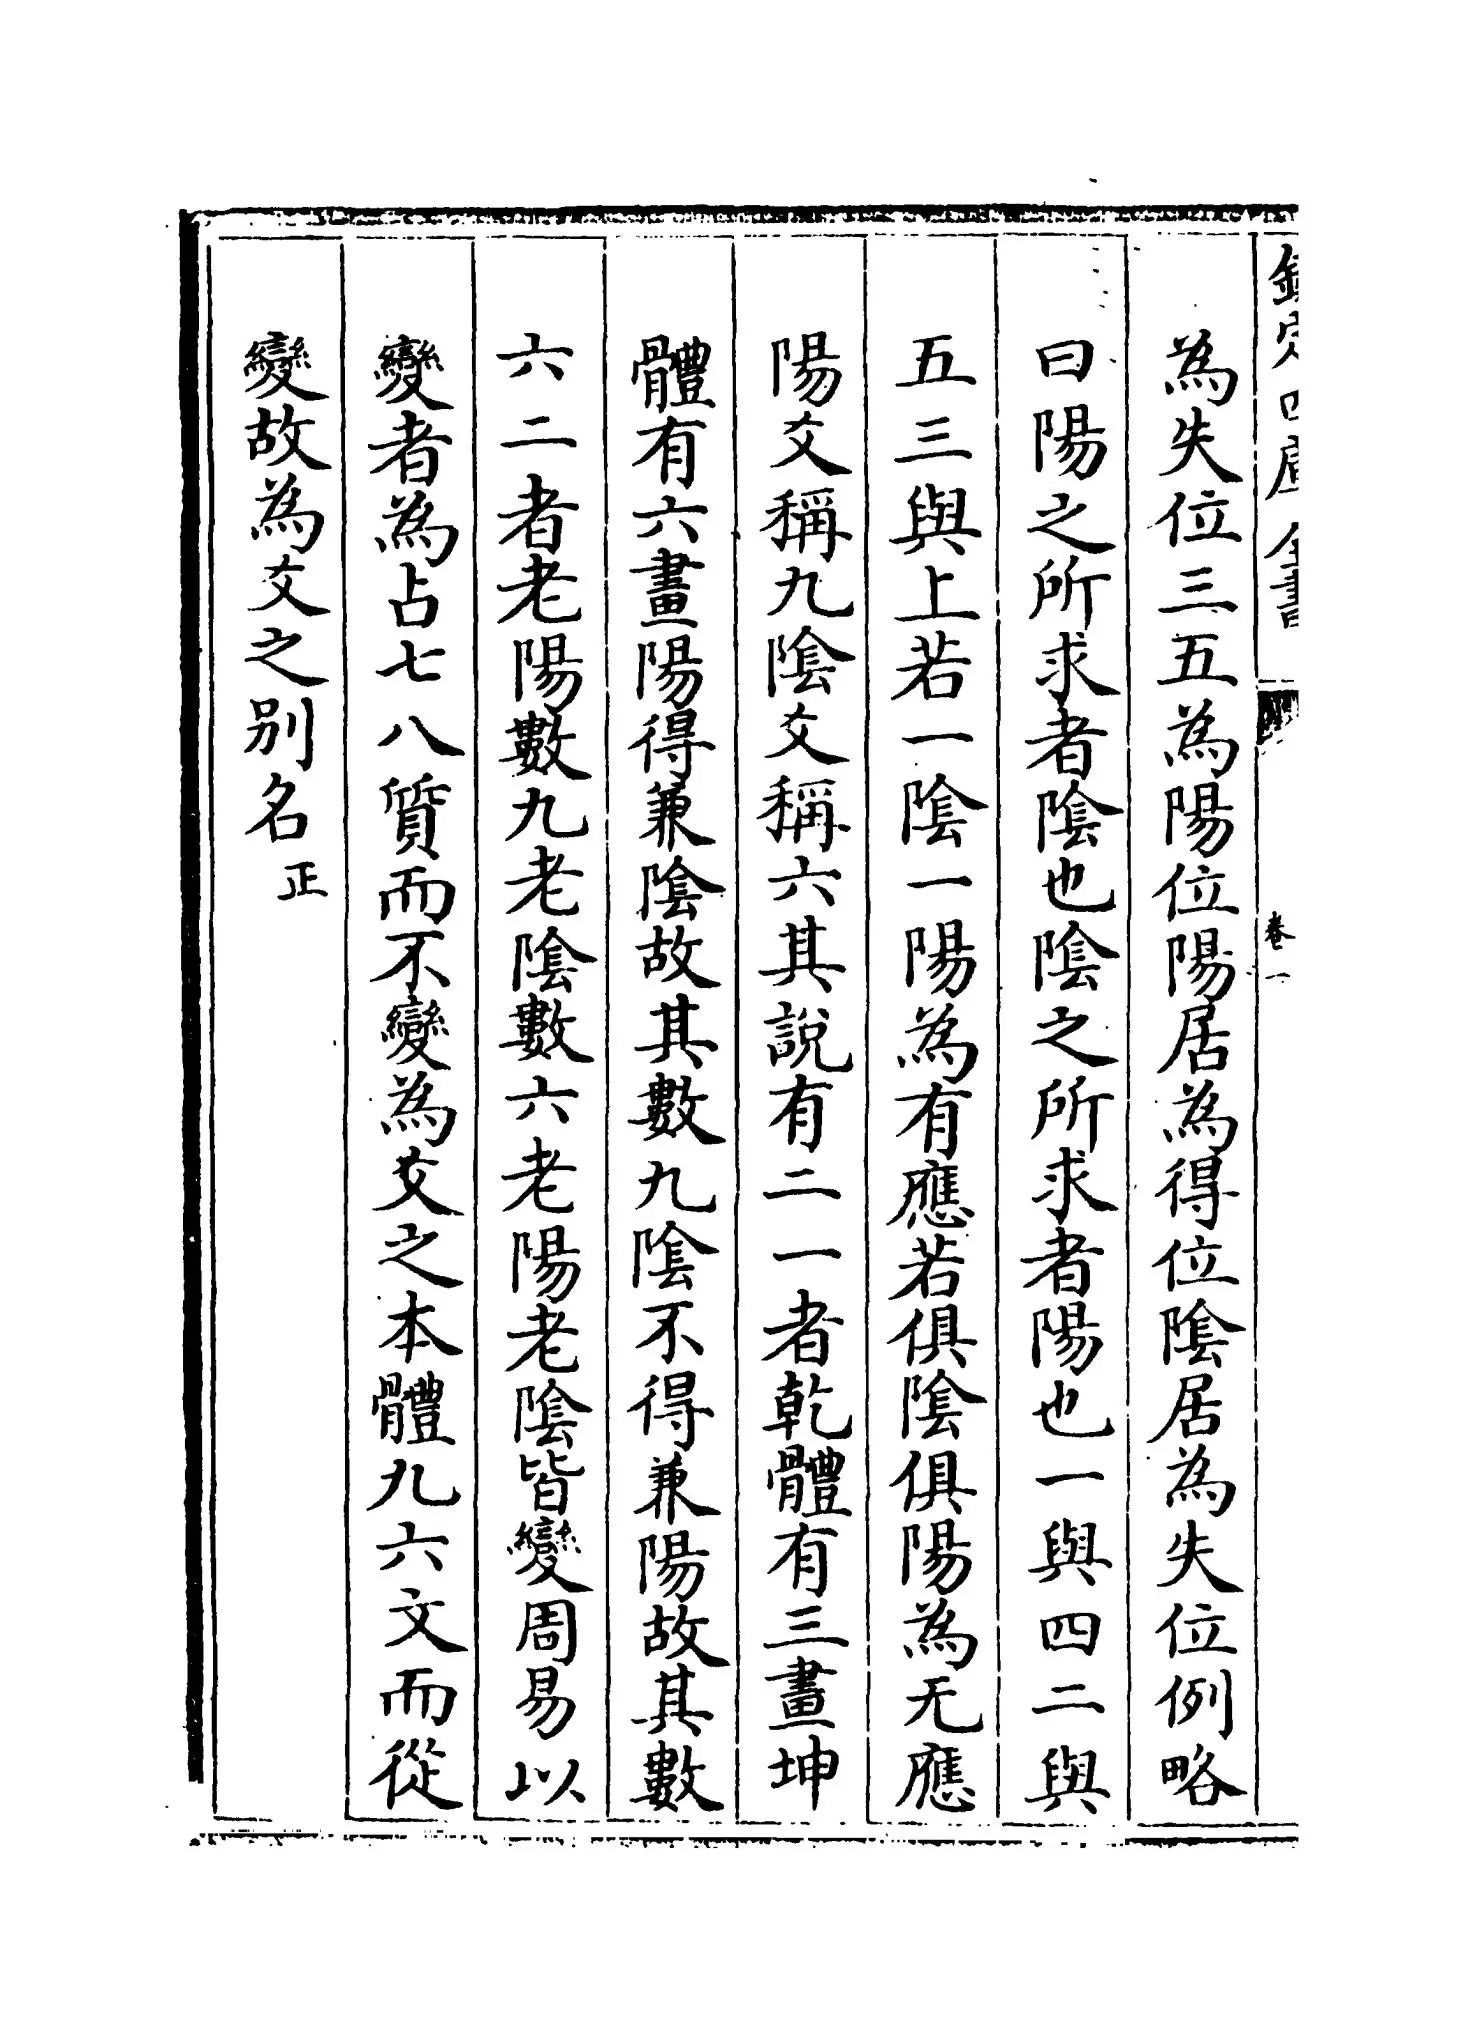 欽定四庫全書
卷一
為失位三五為陽位陽居為得位陰居為失位例略
曰陽之所求者陰也陰之所求者陽也一與四二與
五三與上若一陰一陽為有應若俱陰俱陽為无應
陽爻稱九陰爻稱六其說有二一者乾體有三畫坤
體有六畫陽得兼陰故其數九陰不得兼陽故其數
六二者老陽數九老陰數六老陽老陰皆變周易以
變者為占七八質而不變為爻之本體九六文而從
變故為爻之別名正